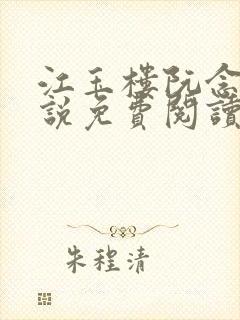 江玉楼阮念
說免費閱讀
朱程清